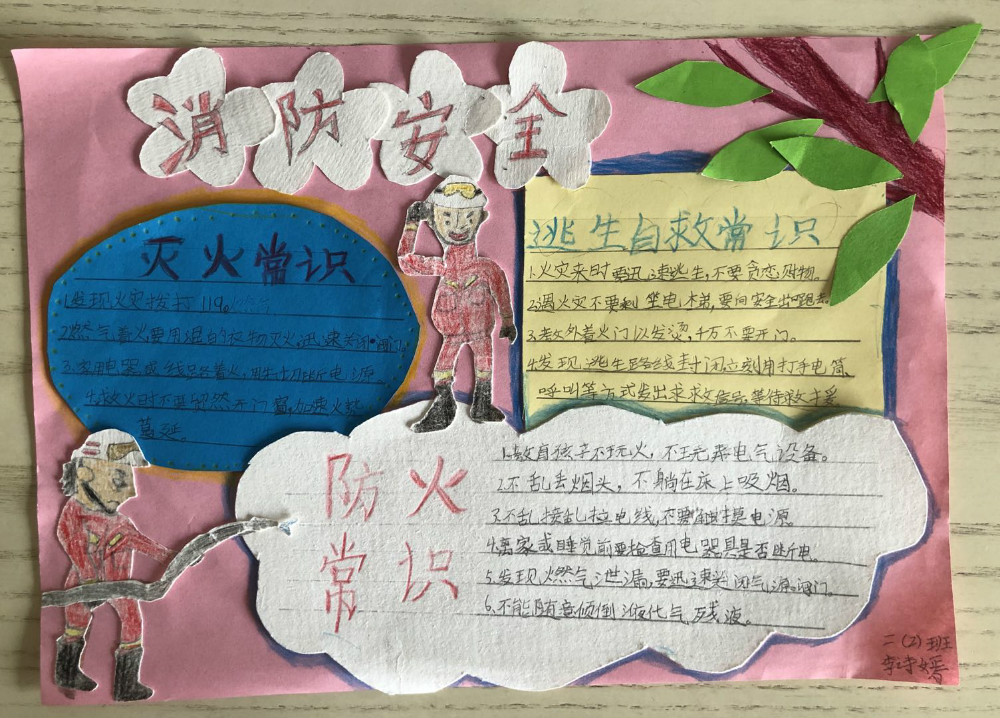 消防安全
灭火常识
1.发现火灾拨打119。
2.燃气着火要用湿的衣物灭火,迅速关闭阀门。
3.家用电器或线路着火,用先切断电源
4.救火时不要贸然开门窗,加速火势
蔓延。
逃生自救常识
1.火灾来时要迅速逃生,不要贪恋财物。
2.遇火灾不要乘坐电梯,要向安全出口跑去
3.室外着火门以发烫,千万不要开门。
4.发现逃生路线封闭立刻用打手电筒
呼叫等方式发出求救信号,等待救援
防火
常识
1.教育孩子不玩火,不玩弄电气设备。
2.不乱丢烟头,不躺在床上吸烟。
3.不乱接乱拉电线,不要触摸电源。
4.离家或睡觉前要检查用电器具是否断电。
5.发现燃气泄漏,要迅速关闭气源阀门。
6.不能随意倾倒液化气残液。
二(2)班